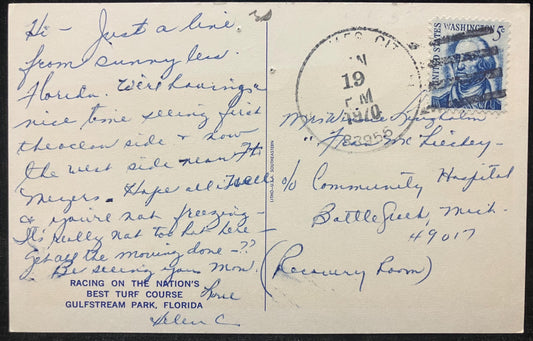 Hi - Just a line
from sunny less
Florida. We're having a
nice time seeing first
the ocean side & now
the west side near Ft
Meyers. Hope all is well
& you're not freezing -
It's really not too hot here -
Get all the moving done - ??
Be seeing you Mon.
Love
Helen C
RACING ON THE NATION'S
BEST TURF COURSE
GULFSTREAM PARK, FLORIDA
LITHO-U.S.A. SOUTHEASTERN
19
PM
1970
33955
UNITED STATES
WASHINGTON 5c
Mrs
Fern McCleskey
c/o Community Hospital
Battle Creek, Mich.
49017
(Recovery Room)